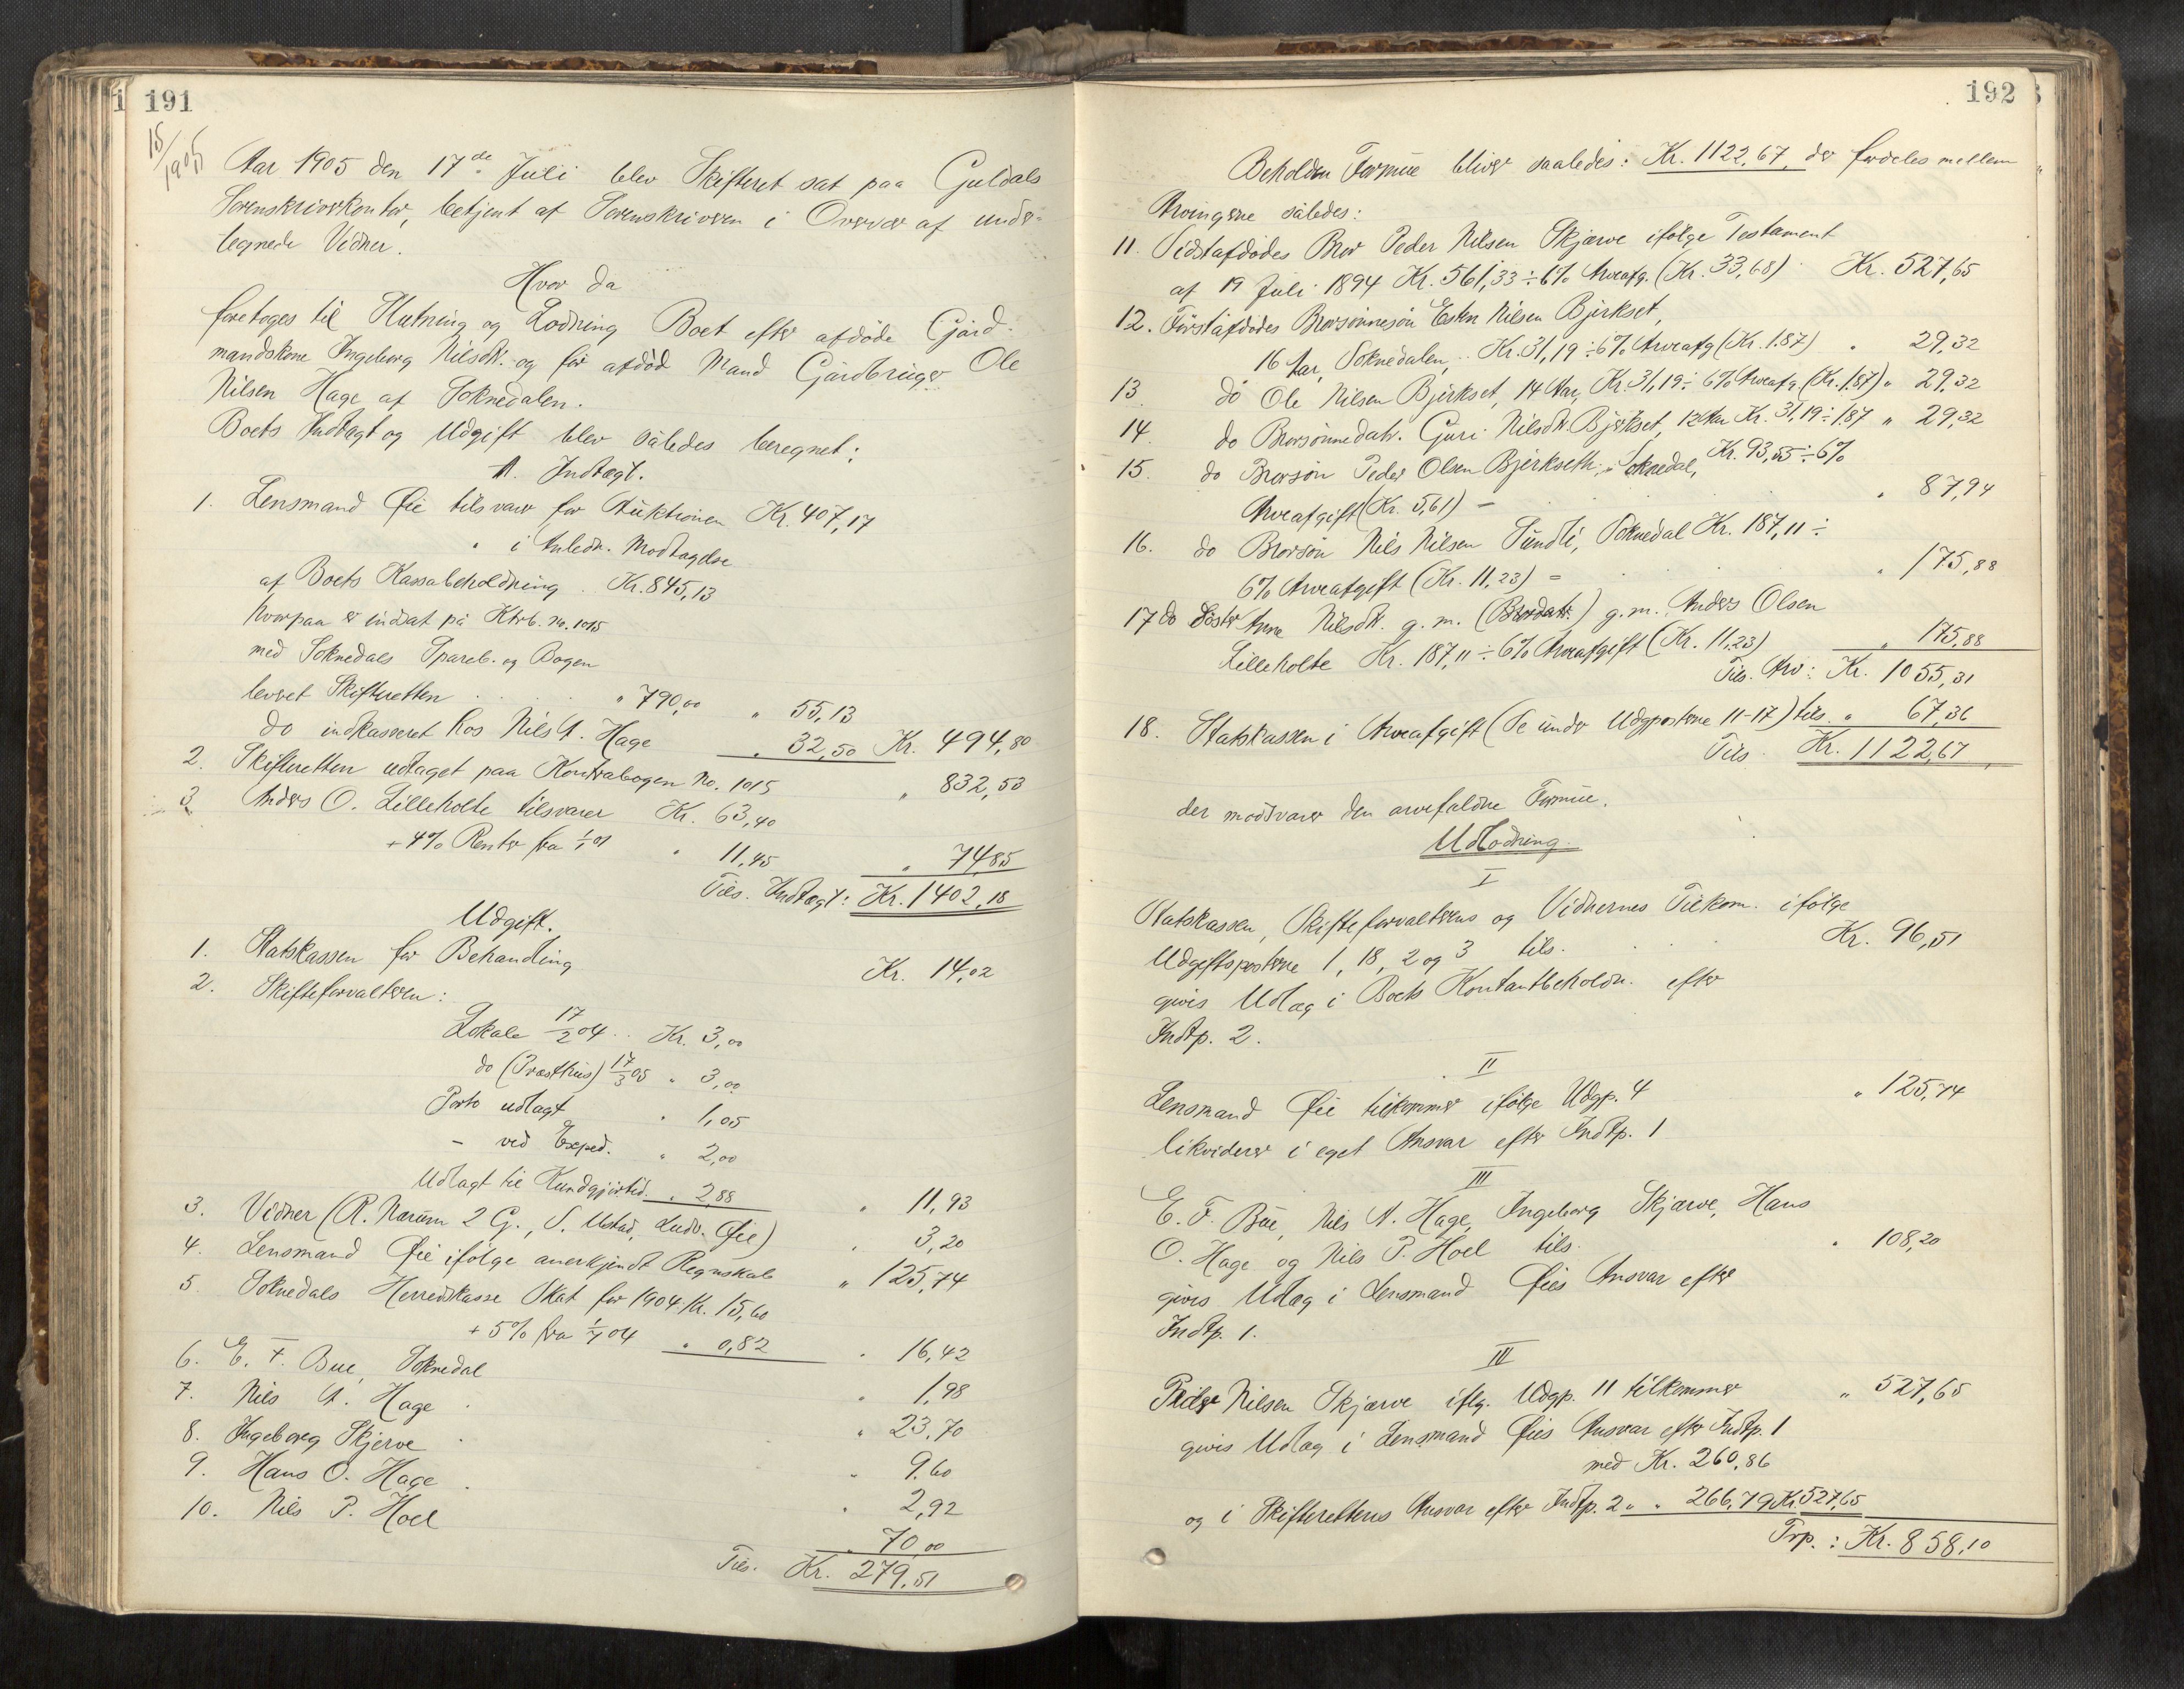 191
15/1905
Aar 1905 den 17de Juli blev Skifteret sat paa Guldals
Sorenskriverkontor, betjent af Sorenskriveren i Overvær af under-
tegnede Vidner.
Hvor da
foretoges til Slutning og Lodning Boet efter afdöde Gård-
mandskone Ingeborg Nilsdtr. og för afdöd Mand Gårdbruger Ole
Nilsen Hage af Soknedalen.
Boets Indtægt og Udgift blev således beregnet:
A. Indtægt.
1. Lensmand Øie tilsvarer for Auktionen Kr. 407,17
" i Anledn. Modtagelse
af Boets Kassabeholdning . Kr. 845,13
hvorpaa er indsat på Ktrb. no. 1015
med Soknedals Spareb. og Bogen
levret Skifteretten . . . . " 790,00 " 55,13
do indkasseret hos Nils A. Hage " 32,50 Kr. 494,80
2. Skifteretten udtaget paa Kontrabogen No. 1015 " 832,53
3. Anders O. Lilleholte tilsvarer Kr. 63,40
+ 4% Renter fra 1/1 01 " 11,45 " 74,85
Tils. Indtægt: Kr. 1402,18
Udgift.
1. Statskassen for Behandling Kr. 14,02
2. Skifteforvalteren:
Lokale 17/2 04 . . Kr. 3,00
do (Præsthus) 17/3 05 " 3,00
Porto udlagt " 1,05
- ved Exped. " 2,00
Udlagt til Kundgjörtid. " 2,88 " 11,93
3. Vidner (R. Narum 2 G., S. Ustad, Ludv. Øie) " 3,20
4. Lensmand Øie ifölge anerkjendt Regnskab " 125,74
5. Soknedals Herredskasse Skat for 1904 Kr. 15,60
+ 5% fra 1/7 04 " 0,82 " 16,42
6. E. F. Bue, Soknedal " 1,98
7. Nils A. Hage . " 23,70
8. Ingeborg Skjerve . " 9,60
9. Hans O. Hage . " 2,92
10. Nils P. Hoel " 70,00
Tils. Kr. 279,51
192
Beholden Formue bliver saaledes: Kr. 1122,67, der fordeles mellem
Arvingerne således:
11. Sidstafdödes Bror Peder Nilsen Skjærve ifölge Testament
af 19 Juli 1894 Kr. 561,33 ÷ 6% Arveafg. (Kr. 33,68) Kr. 527,65
12. Förstafdödes Brorsönnesön Esten Nilsen Bjerkset,
16 Aar, Soknedalen, Kr. 31,19 ÷ 6% Arveafg (Kr. 1.87) " 29,32
13 do Ole Nilsen Bjerkset, 14 Aar, Kr. 31,19 ÷ 6% Arveafg. (Kr. 1,87) " 29,32
14. do Brorsönnedatr. Guri Nilsdtr. Bjerkset, 12 Aar Kr. 31,19 ÷ 1,87 " 29,32
15. do Brorsön Peder Olsen Bjerkseth, Soknedal, Kr. 93,55 ÷ 6%
Arveafgift (Kr. 5,61) - . . . " 87,94
16. do Brorsön Nils Nilsen Sundli, Soknedal Kr. 187,11 ÷
6% Arveafgift (Kr. 11,23) = . . . " 175,88
17 do Söster Anne Nilsdtr. g. m. (Brordatr.) g. m. Anders Olsen
Lilleholte Kr. 187,11 ÷ 6% Arveafgift (Kr. 11,23) " 175,88
Tils. Arv: Kr. 1055,31
18. Statskassen i Arveafgift (Se under Udgposterne 11-17) tils. " 67,36
Tils. Kr. 1122,67
der modsvarer den arvefaldne Formue.
Udlodning.
I
Statskassen, Skifteforvalterens og Vidnernes Tilkom. ifölge
Udgiftsposterne 1, 18, 2 og 3 tils. . . . Kr. 96,51
givis Udlæg i Boets Kontantbeholdn. efter
Indtp. 2.
II
Lensmand Øie tilkommer ifölge Udgp. 4 " 125,74
likviderer i eget Ansvar efter Indtp. 1
III
E. F. Bue, Nils A. Hage, Ingeborg Skjærve, Hans
O. Hage og Nils P. Hoel tils. " 108,20
givis Udlæg i Lensmand Øies Ansvar efter
Indtp. 1.
IV
Peder Nilsen Skjærve iflg. Udgp. 11 tilkommer " 527,65
givis Udlæg i Lensmand Øies Ansvar efter Indtp. 1
med Kr. 260,86
og i Skifterettens Ansvar efter Indtp. 2 " " 266,79 Kr. 527,65
Trp. : Kr. 858,10